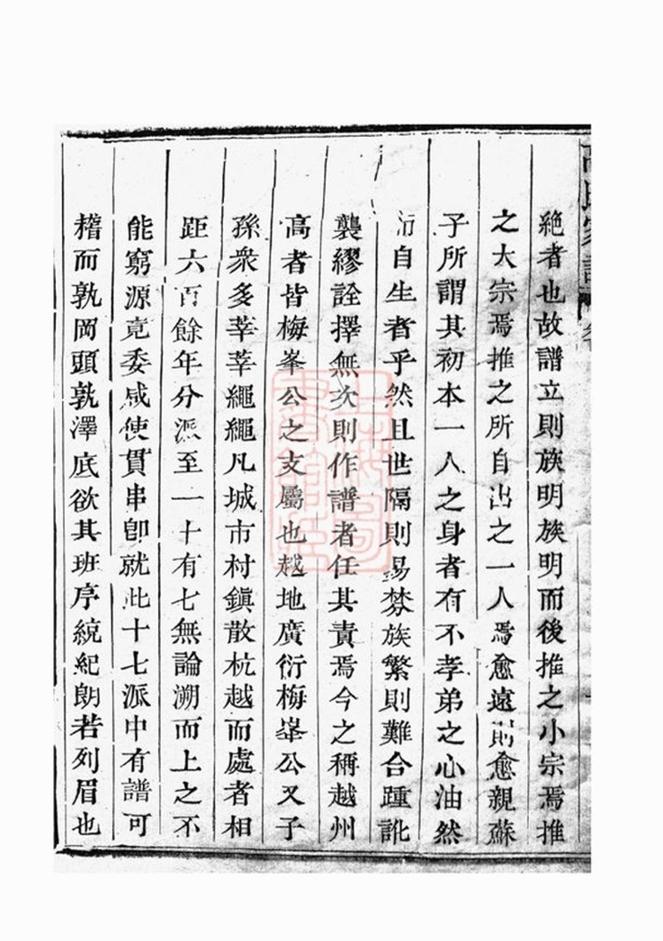 高氏家譜
絶者也故譜立則族明族明而後推之小宗焉推
之大宗焉推之所自出之一人焉愈遠則愈親蘇
子所謂其初本一人之身者有不孝弟之心油然
而自生者乎然且世隔則易棼族繁則難合踵訛
襲繆詮擇無次則作譜者任其責焉今之稱越州
高者皆梅峯公之支屬也越地廣衍梅峯公又子
孫衆多莘莘繩繩凡城市村鎮散杭越而處者相
距六百餘年分派至一十有七無論溯而上之不
能窮源竟委咸使貫串卽就此十七派中有譜可
稽而孰岡頭孰澤底欲其班序綂紀朗若列眉也